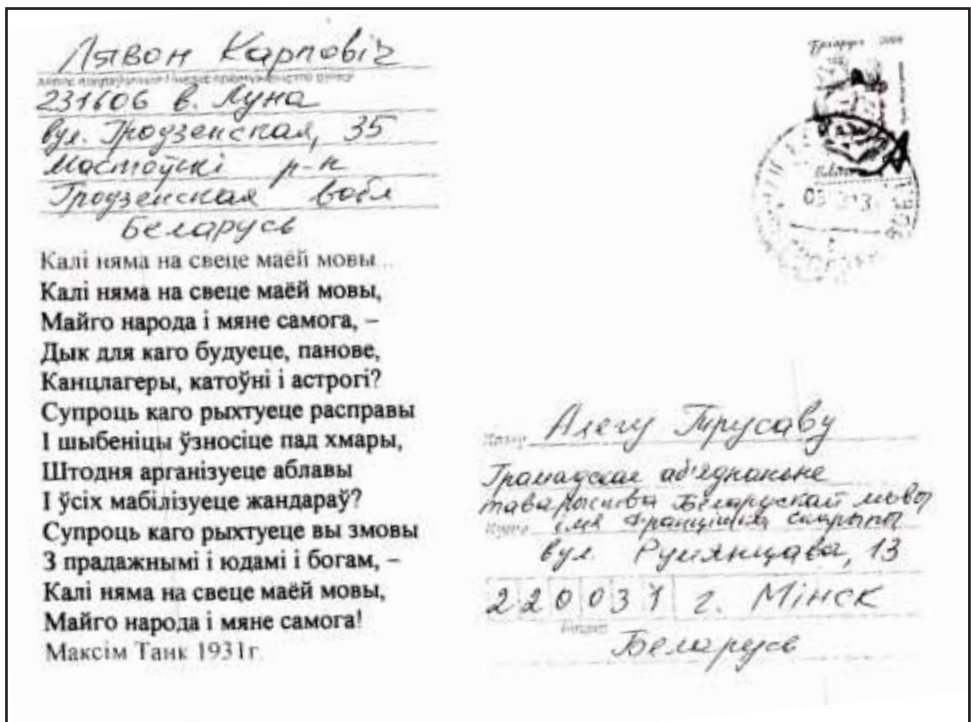 Лявон Карповіч
231606 в. Луна
вул. Гродзенская, 35
Мастоўскі р-н
Гродзенская вобл
Беларусь
Калі няма на свеце маёй мовы...
Калі няма на свеце маёй мовы,
Майго народа і мяне самога, –
Дык для каго будуеце, панове,
Канцлагеры, катоўні і астрогі?
Супроць каго рыхтуеце расправы
І шыбеніцы ўзносіце пад хмары,
Штодня арганізуеце аблавы
І ўсіх мабілізуеце жандараў?
Супроць каго рыхтуеце вы змовы
З прадажнымі і юдамі і богам, –
Калі няма на свеце маёй мовы,
Майго народа і мяне самога!
Максім Танк 1931г.
Беларусь
Алегу Трусаву
Грамадскае аб'яднаньне
таварыства Беларускай мовы
імя Францішка Скарыны
Куды
вул. Румянцава, 13
220031 г. Мінск
Індэкс
Беларусь